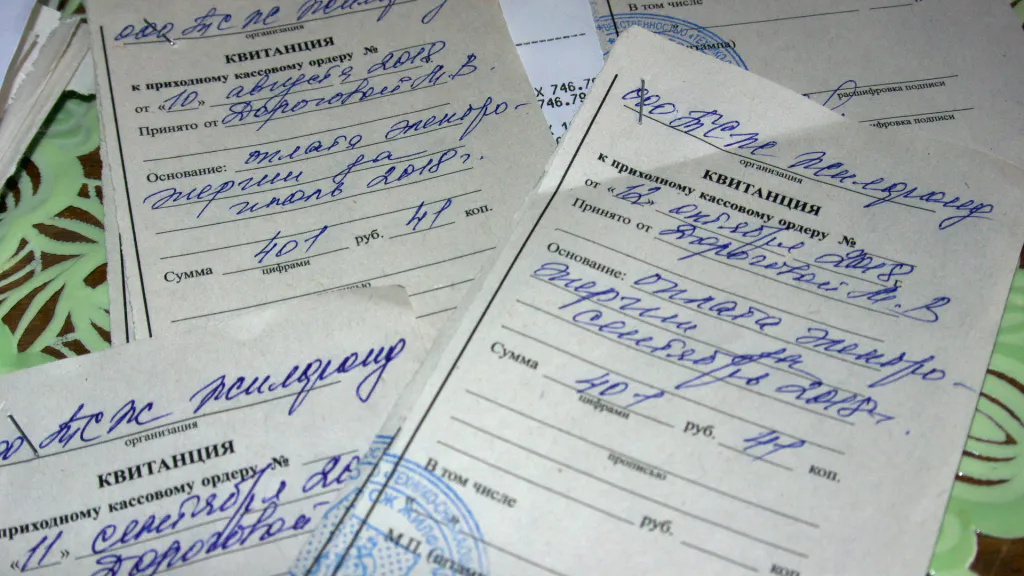 ООО ТСЖ Жилфонд
организация
КВИТАНЦИЯ
к приходному кассовому ордеру №
от «10» августя 2018
Принято от Дороговой М.В.
Основание: оплата электро-
энергии за
июль 2018 г.
Сумма 401 руб. 41 коп.
цифрами
прописью
организация
КВИТАНЦИЯ
приходному кассовому ордеру №
«11» сентября 20
Дороговой
ТСЖ Жилфонд
ООО ТСЖ Жилфонд
организация
КВИТАНЦИЯ
к приходному кассовому ордеру №
от «12» октября 2018
Принято от Дороговой М.В
Основание: оплата электро-
энергии за
сентябрь 2018 г.
Сумма 401 руб. 41 коп.
цифрами
прописью
В том числе
руб. коп.
М.П. (штампа)
В том числе
расшифровка подписи
расшифровка подписи
X 746.79
746.79